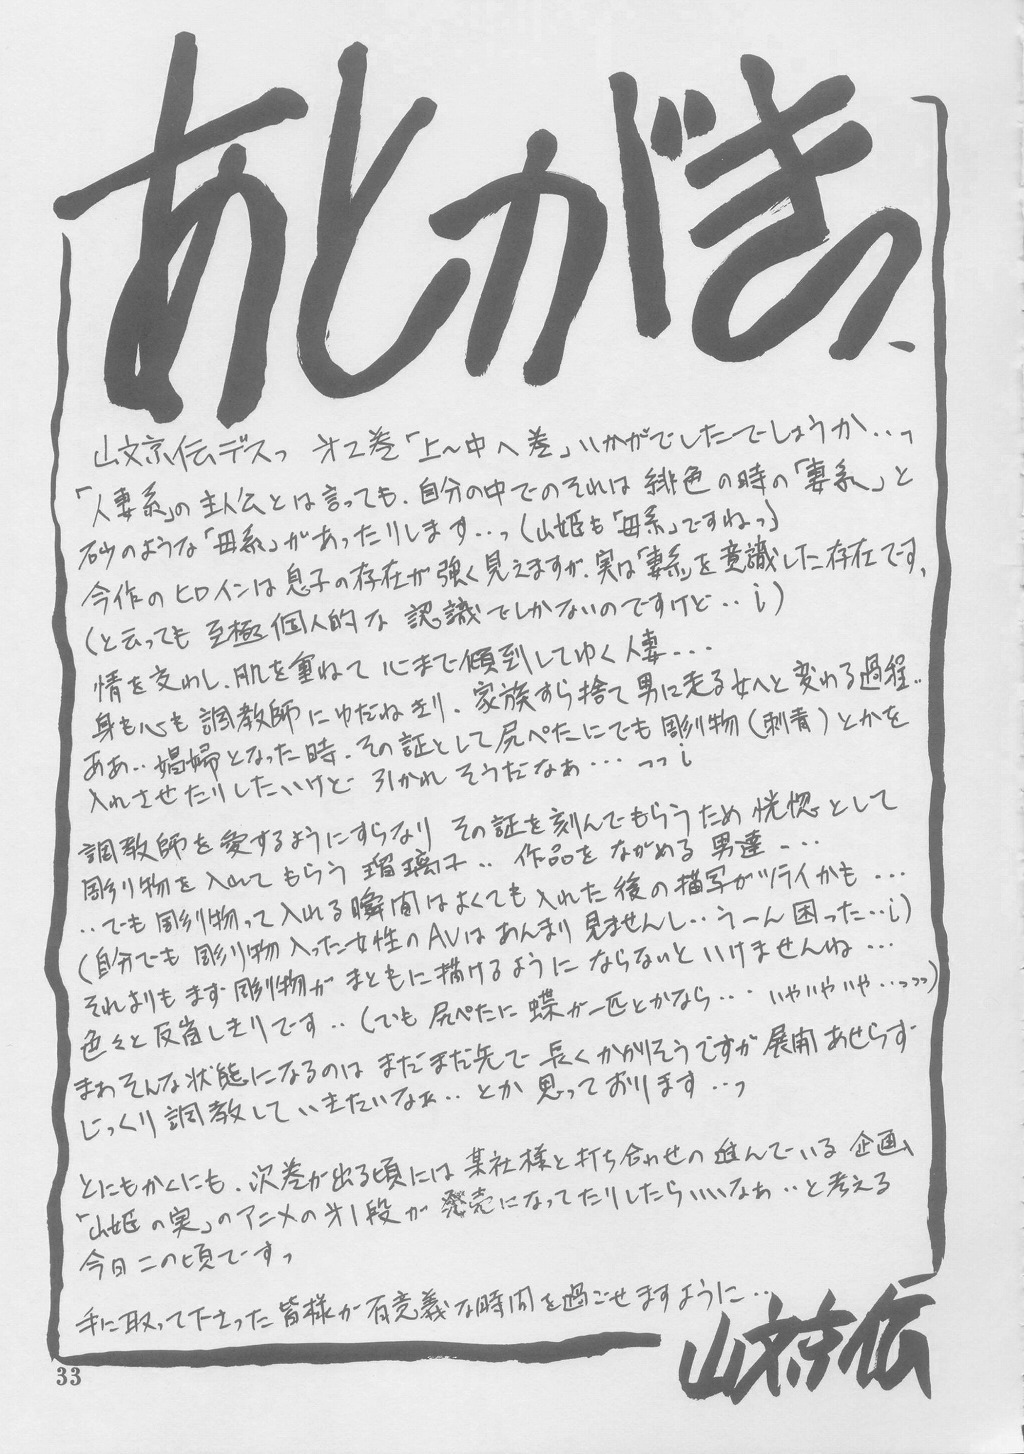 あとがきっ、
山文京伝デスっ 第2巻「上〜中へ巻」いかがでしたでしょうか‥っ
「人妻系」の主人公とは言っても、自分の中でのそれは 緋色の時の「妻系」と
砂のような「母系」があったりします…っ(山姫も「母系」ですねっ)
今作のヒロインは息子の存在が強く見えますが、実は「妻系」を意識した存在です、
(と云っても 至極個人的な 認識でしかないのですけど‥i)
情を交わし、肌を重ねて 心まで傾倒してゆく人妻‥‥
身も心も 調教師にゆだねきり、家族すら捨て男に走る女へと変わる過程‥
ああ‥娼婦となった時、その証として尻ぺたにでも彫り物(刺青)とかを
入れさせたりしたいけど 引かれそうだなぁ…っっi
調教師を愛するようにすらなり その証を刻んでもらうため 恍惚として
彫り物を入れてもらう 瑠璃子‥ 作品をながめる男達‥‥
‥でも彫り物って入れる瞬間はよくても入れた後の描写がツライかも…
(自分でも彫り物入った女性のAVはあんまり見ませんし‥うーん困った‥i)
それよりもまず彫り物がまともに描けるようにならないといけませんね…
色々と反省しきりです‥(でも尻ぺたに蝶が一匹とかなら‥・いやいやいや‥っっっ)
まぁそんな状態になるのはまだまだ先で 長くかかりそうですが 展開あせらず
じっくり調教していきたいなぁ‥とか思っております‥っ
とにもかくにも、次巻が出る頃には某社様と打ち合わせの進んでいる企画、
「山姫の実」のアニメの第1段が発売になってたりしたらいいなぁ‥と考える
今日この頃ですっ
手に取って下さった皆様が有意義な時間を過ごせますように‥
山文京伝
33